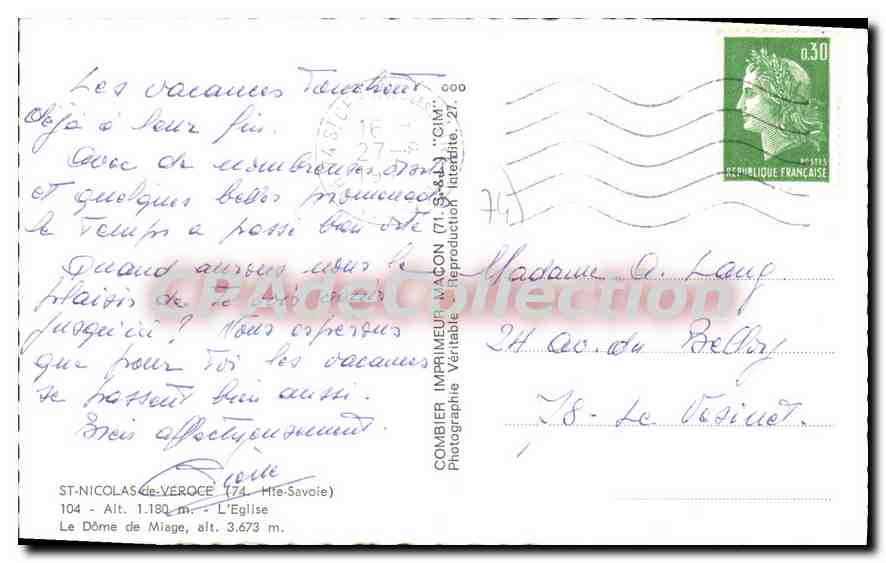 Les vacances touchent
déjà à leur fin.
Avec de nombreuses
et quelques belles promenades
le temps a passé bien vite
Quand aurons nous le
plaisir de te voir
jusqu'ici ? Nous espérons
que pour toi les vacances
se passent bien aussi.
Bien affectueusement.
ST-NICOLAS-de-VEROCE (74. Hte-Savoie)
104 - Alt. 1.180 m. - L'Eglise
Le Dôme de Miage, alt. 3.673 m.
COMBIER IMPRIMEUR MACON (71. S.-&-L.) "CIM"
Photographie Véritable - Reproduction Interdite. 27.
000
16 -
27 -
74
0,30
POSTES
REPUBLIQUE FRANÇAISE
Madame A. Lang
24 av. du Belloy
78 - Le Vésinet.
CPAdeCollection